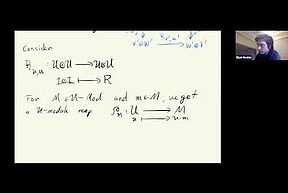 w⊗w' w'⊗w
Consider
R_{u,u} : U⊗U ⟶ U⊗U
1⊗1 ⟼ R
For M ∈ U-Mod and m∈M, we get
a U-module map ρ_m : U ⟶ M
x ⟼ x·m